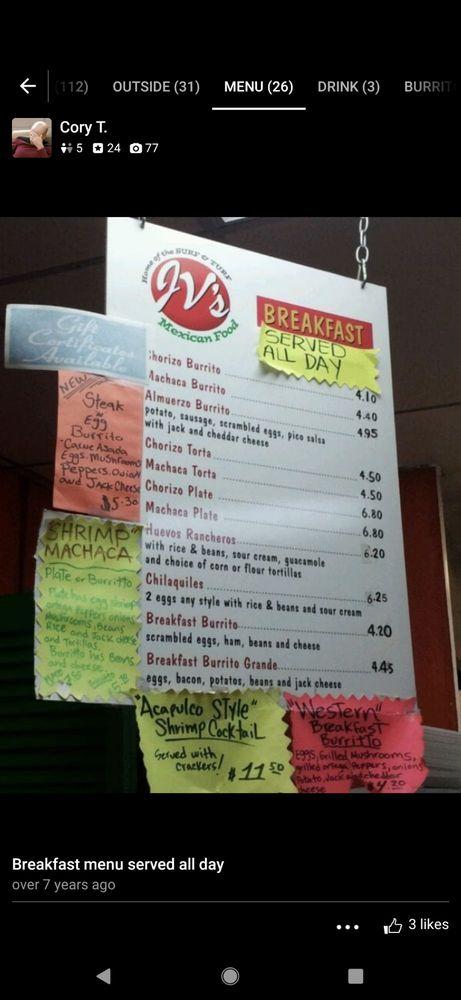 (112) OUTSIDE (31) MENU (26) DRINK (3) BURRIT
Cory T.
5 24 77
Home of the SURF & TURF
JV's
Mexican Food
BREAKFAST
SERVED
ALL DAY
Gift
Certificates
Available
horizo Burrito 4.10
Machaca Burrito 4.40
Almuerzo Burrito 4.95
potato, sausage, scrambled eggs, pico salsa
with jack and cheddar cheese
Chorizo Torta 4.50
Machaca Torta 4.50
Chorizo Plate 6.80
Machaca Plate 6.80
Huevos Rancheros 6.20
with rice & beans, sour cream, guacamole
and choice of corn or flour tortillas
Chilaquiles 6.25
2 eggs any style with rice & beans and sour cream
Breakfast Burrito 4.20
scrambled eggs, ham, beans and cheese
Breakfast Burrito Grande 4.45
eggs, bacon, potatos, beans and jack cheese
NEW
Steak
n
Egg
Burrito
Carne Asada
Eggs, Mushrooms
Peppers, Onion
and Jack Cheese
$5.30
"SHRIMP"
MACHACA
Plate or Burrito
Plate has egg shrimp
ortega peppers onions
Mushrooms, Beans
Rice and Jack cheese
and Tortillas.
Burrito has Beans
and cheese
"Acapulco STyle"
Shrimp Cocktail
Served with
crackers!
$11.50
"Western"
Breakfast
Burritto
EGGS, Grilled Mushrooms,
grilled ortega Peppers, onions
Potato, Jack and cheddar
cheese
$4.20
Breakfast menu served all day
over 7 years ago
3 likes